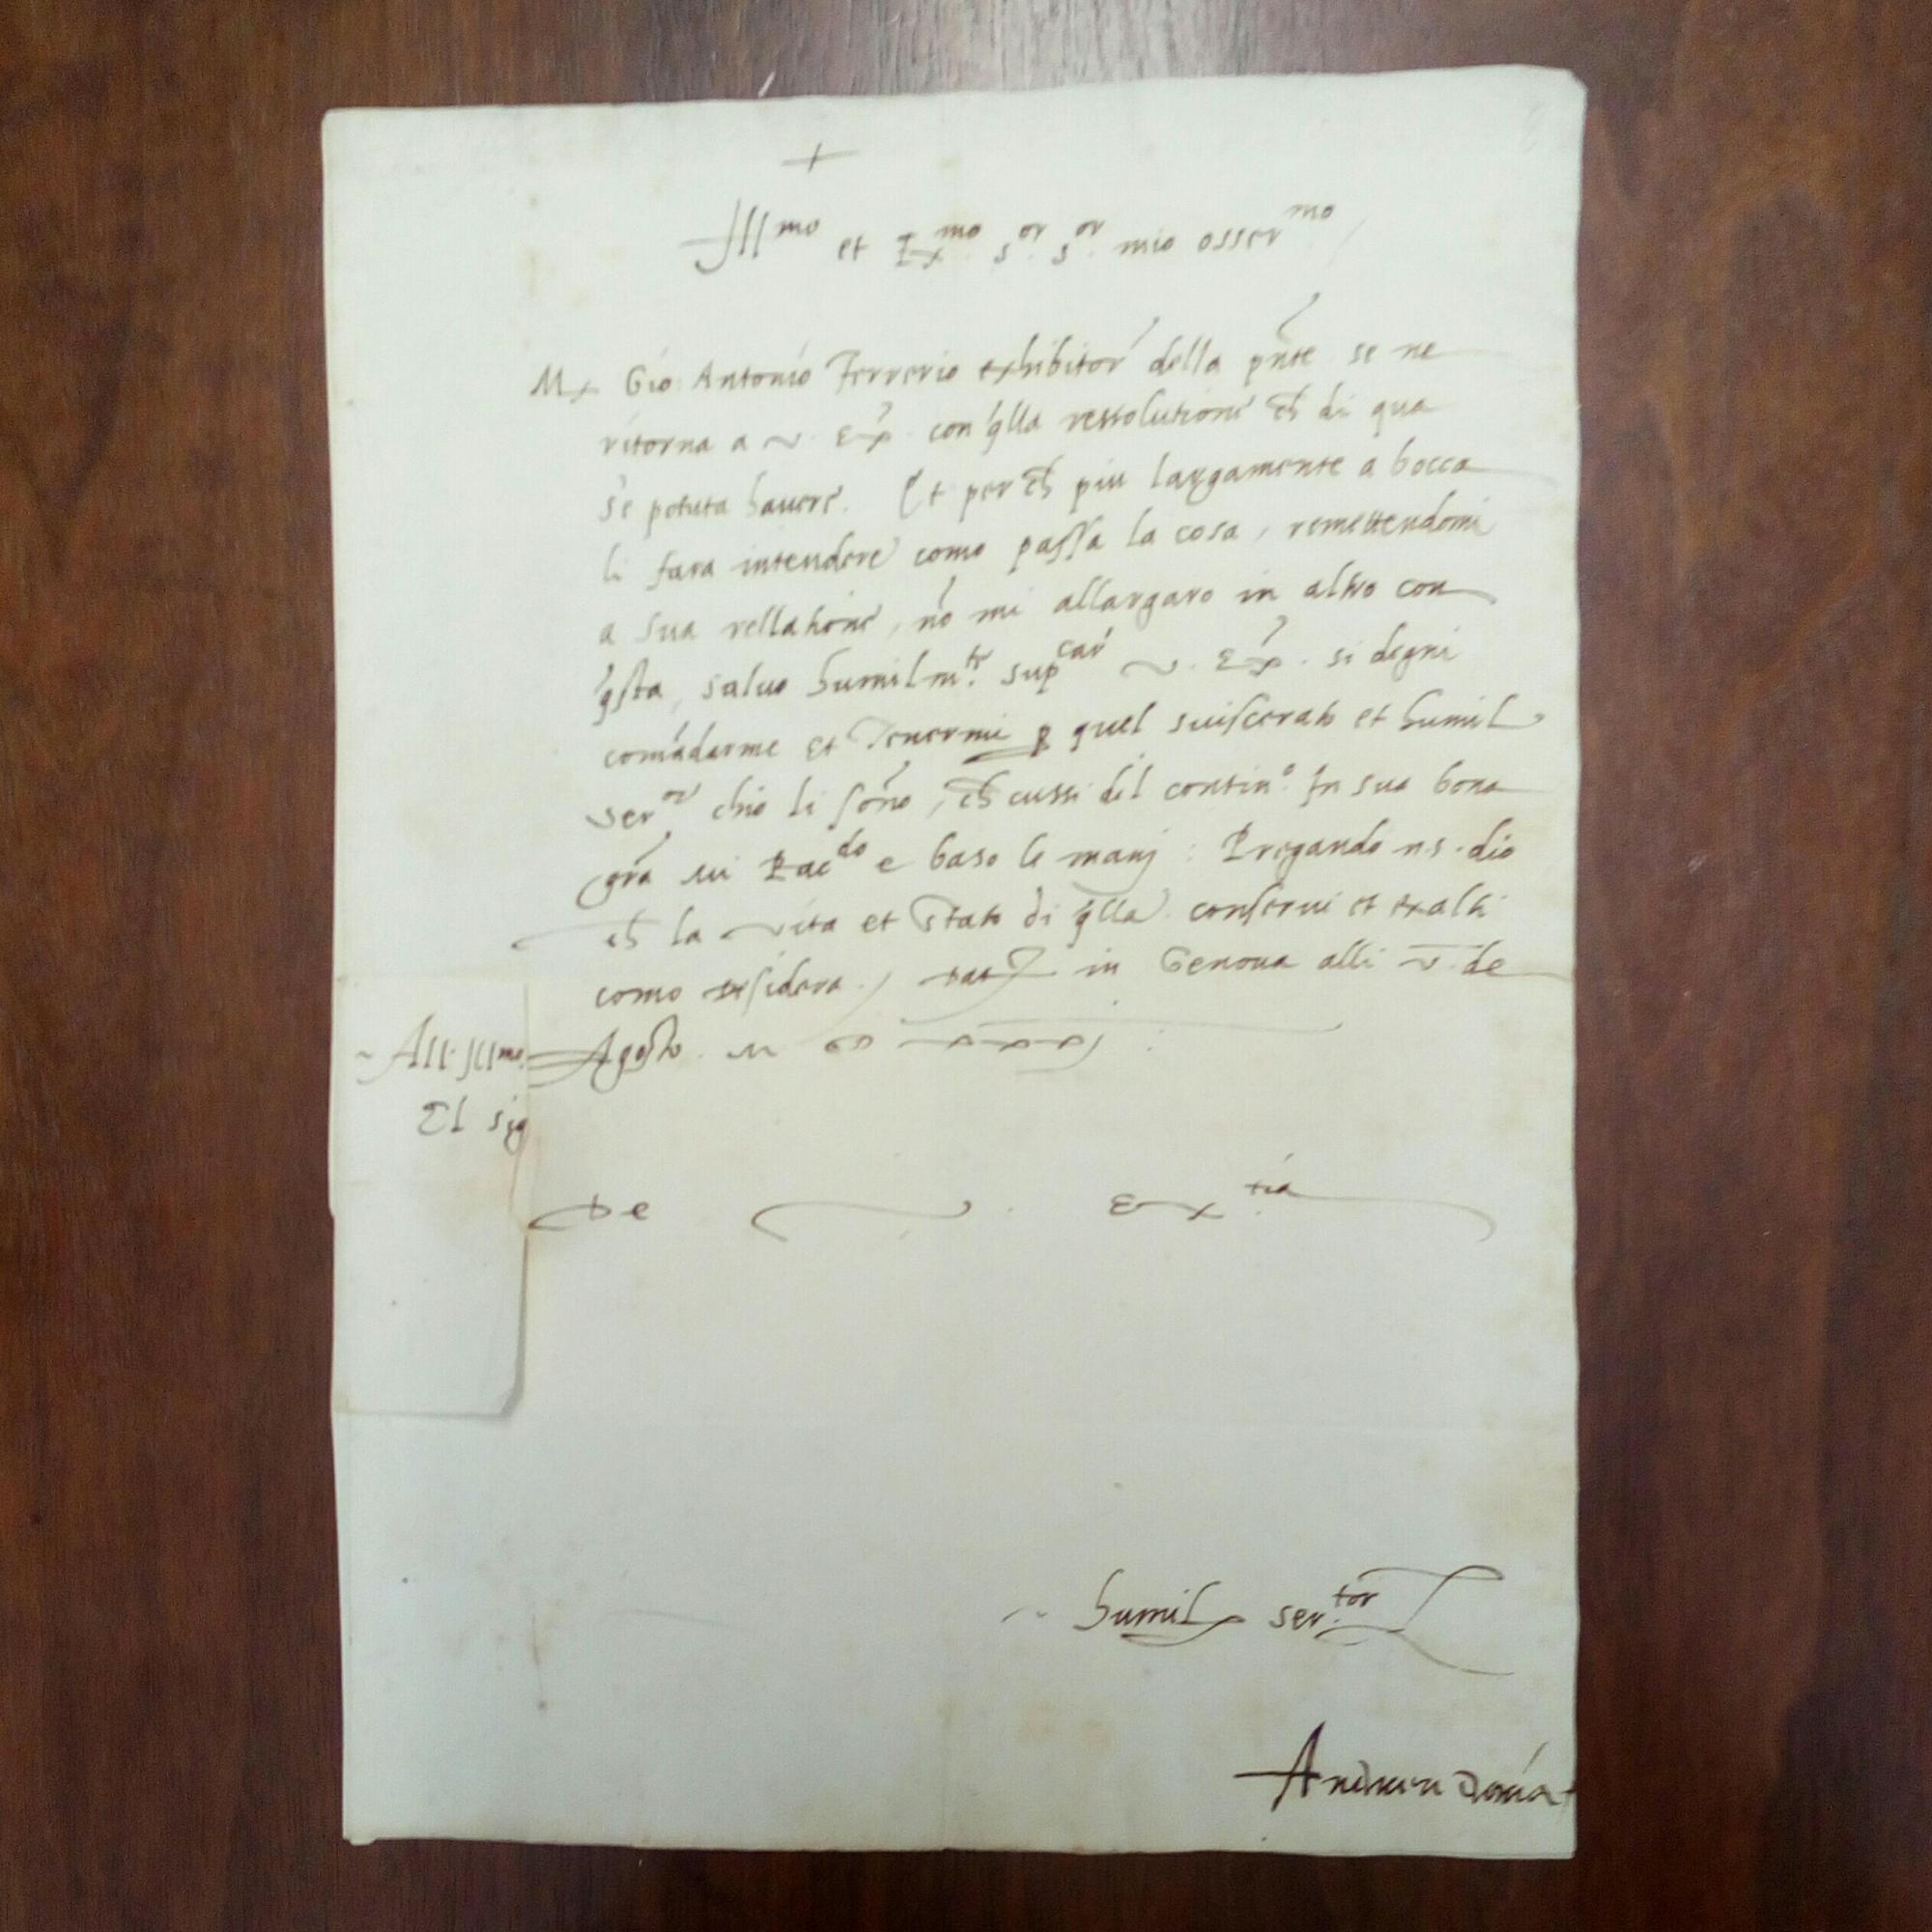 +
Ill^mo et Ex^mo S^or S^or mio osser^mo
M^x Gio: Antonio Ferrerio exhibitor della pnte se ne
ritorna a V. Ex. con qlla ressolutione ch di qua
s'e potuta havere. Et per ch piu largamente a bocca
li fara intendere como passa la cosa, remettendomi
a sua rellatione, nō mi allargaro in altro con
qsta, salvo humilm^te sup^car V. Ex. si degni
comādarme et Tenermi p quel sviscerato et humil
ser^or chio li sono, ch cussi del contin^o In sua bona
gra mi Rac^do e baso le manj: Pregando n.s. dio
ch la vita et Stato di qlla conservi et exalti
como desidera. Dat in Genova alli v de
Agosto M D xxxj:
All Ill^mo
El sig
De V. Ex^tia
humil ser^tor
Andrea Doria